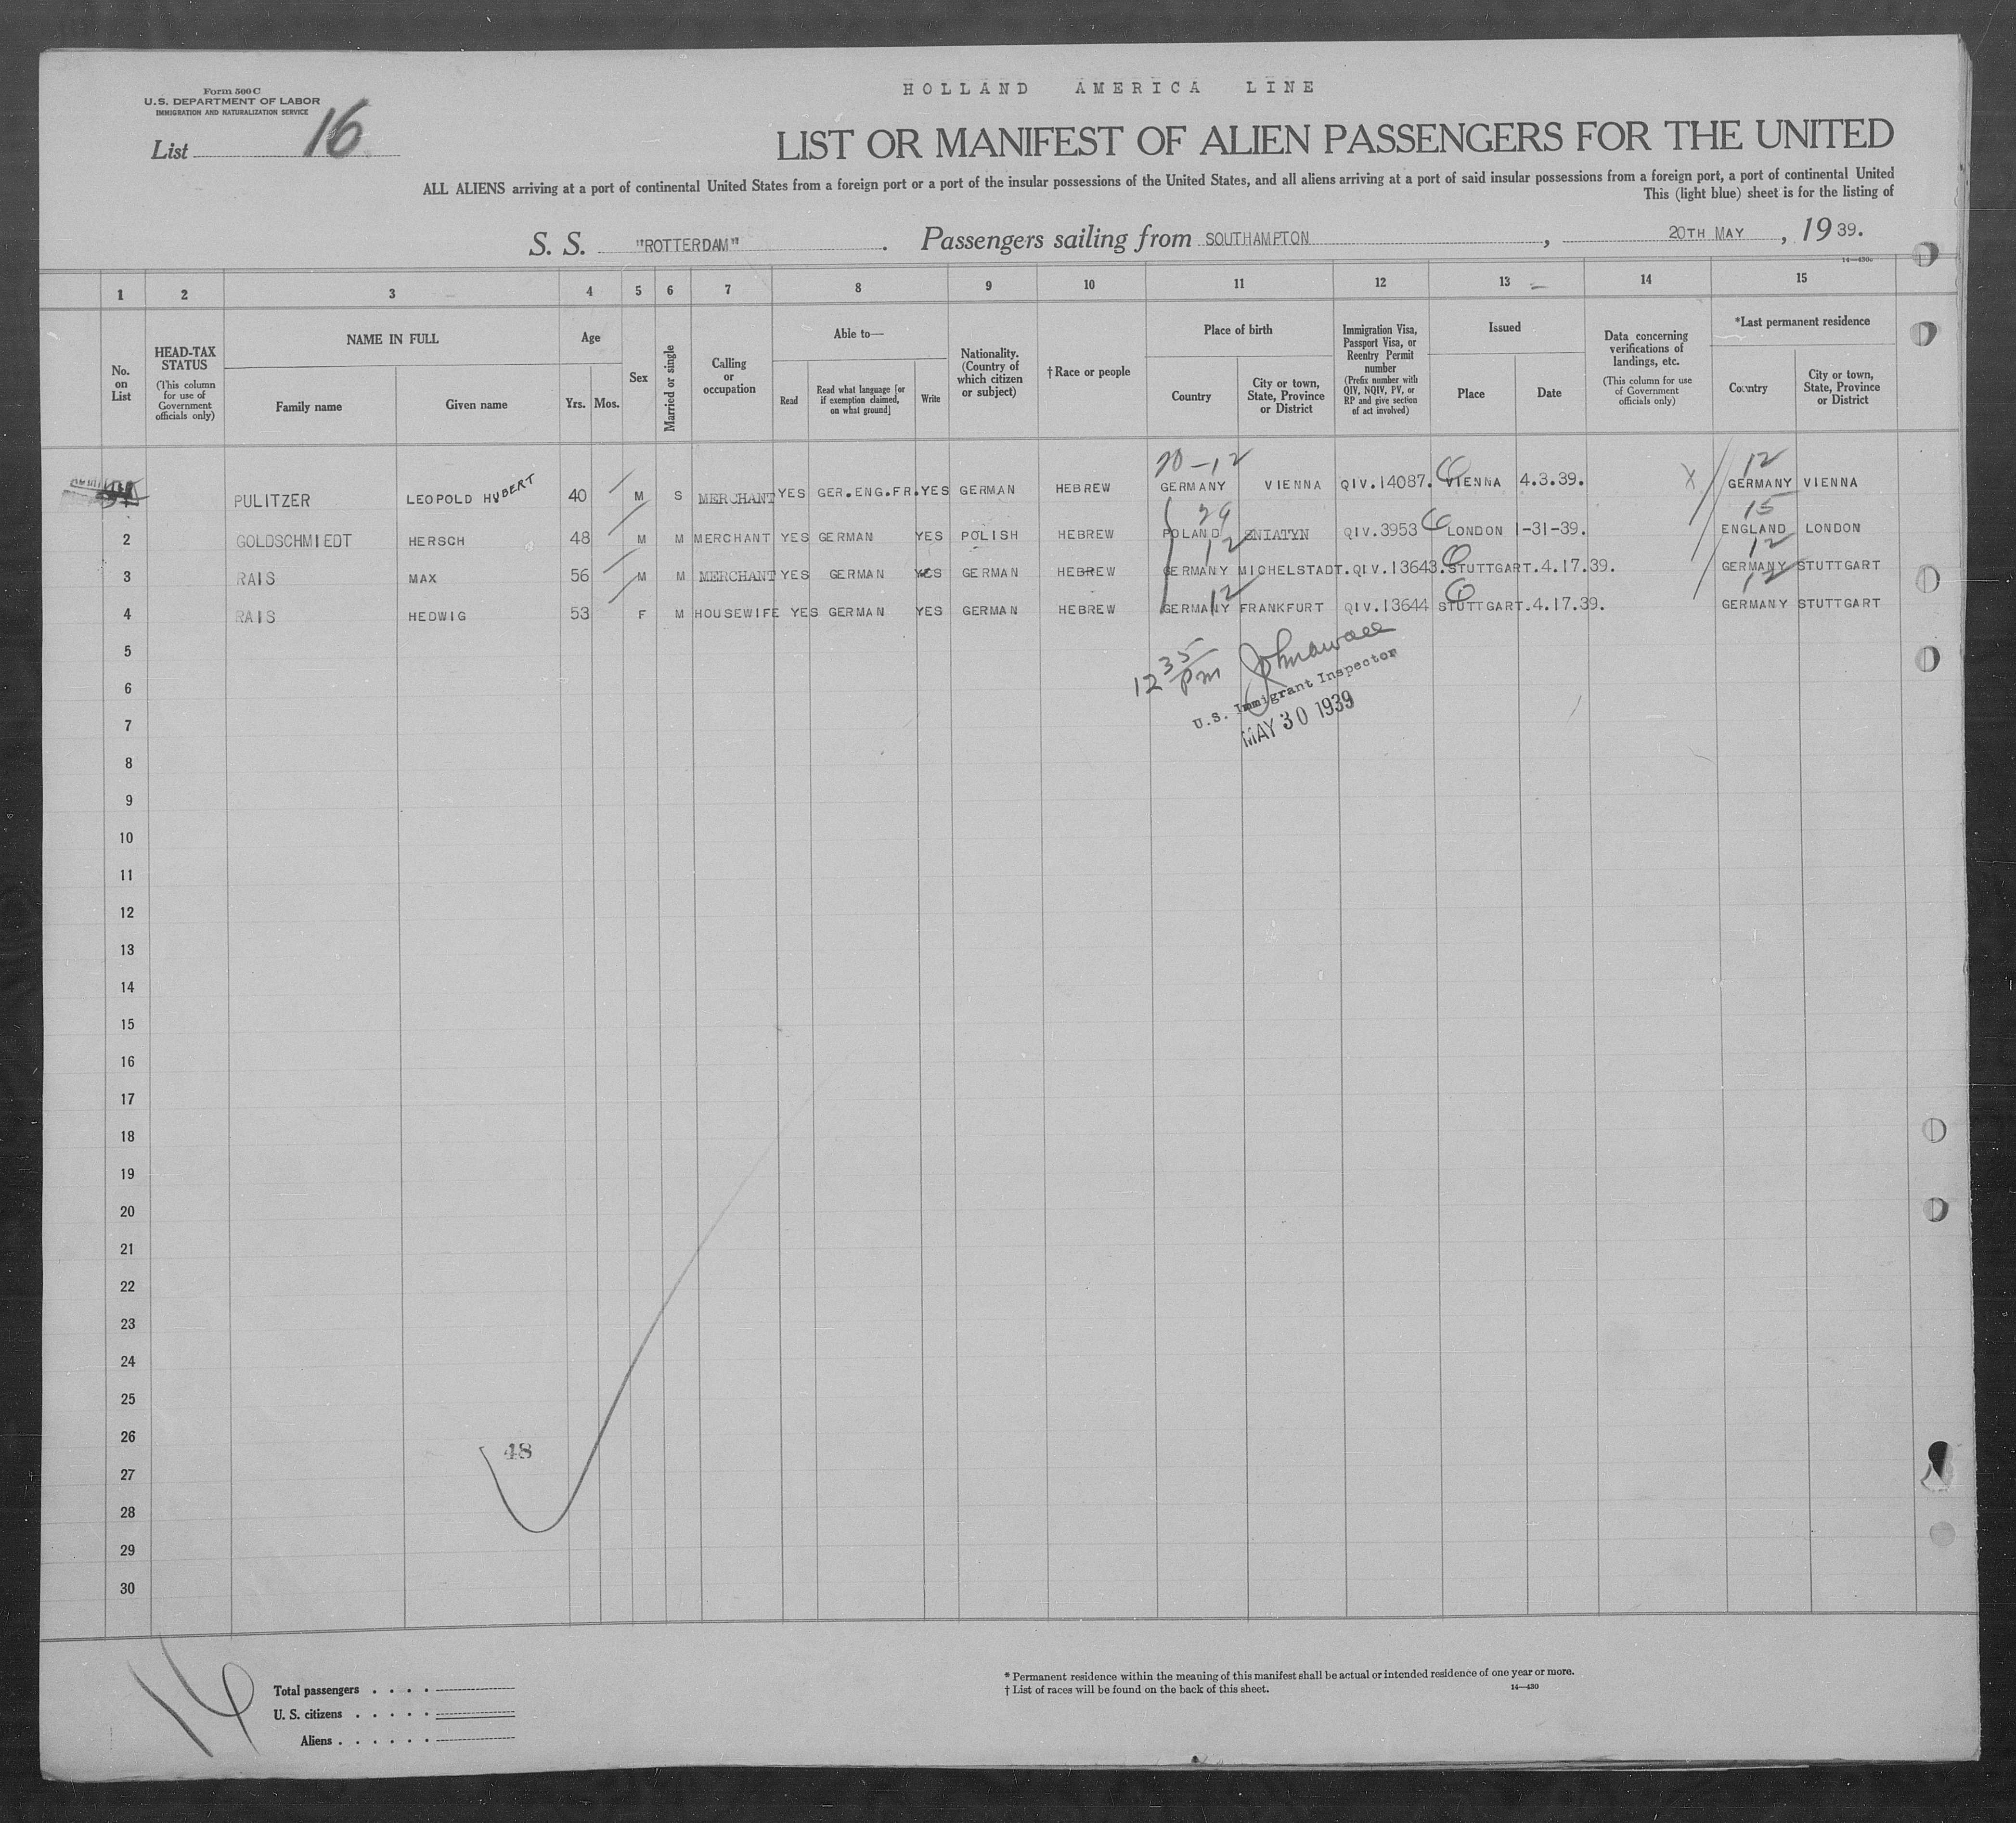 HOLLAND AMERICA LINE
Form 500 C
U.S. DEPARTMENT OF LABOR
IMMIGRATION AND NATURALIZATION SERVICE
List 16
LIST OR MANIFEST OF ALIEN PASSENGERS FOR THE UNITED
ALL ALIENS arriving at a port of continental United States from a foreign port or a port of the insular possessions of the United States, and all aliens arriving at a port of said insular possessions from a foreign port, a port of continental United
This (light blue) sheet is for the listing of
S. S. "ROTTERDAM". Passengers sailing from SOUTHAMPTON, 20TH MAY, 19 39.
14—430c
1 2 3 4 5 6 7 8 9 10 11 12 13 14 15
No. on List
HEAD-TAX STATUS (This column for use of Government officials only)
NAME IN FULL
Family name
Given name
Age
Yrs. Mos.
Sex
Married or single
Calling or occupation
Able to—
Read
Read what language [or if exemption claimed, on what ground]
Write
Nationality. (Country of which citizen or subject)
†Race or people
Place of birth
Country
City or town, State, Province or District
Immigration Visa, Passport Visa, or Reentry Permit number (Prefix number with QIV, NQIV, PV, or RP and give section of act involved)
Issued
Place
Date
Data concerning verifications of landings, etc. (This column for use of Government officials only)
*Last permanent residence
Country
City or town, State, Province or District
20-12 12
PULITZER LEOPOLD HUBERT 40 M S MERCHANT YES GER.ENG.FR. YES GERMAN HEBREW GERMANY VIENNA QIV.14087. VIENNA 4.3.39. X GERMANY VIENNA
29 15
2 GOLDSCHMIEDT HERSCH 48 M M MERCHANT YES GERMAN YES POLISH HEBREW POLAND SNIATYN QIV.3953 LONDON 1-31-39. ENGLAND LONDON
12 12
3 RAIS MAX 56 M M MERCHANT YES GERMAN YES GERMAN HEBREW GERMANY MICHELSTADT. QIV.13643. STUTTGART. 4.17.39. GERMANY STUTTGART
12 12
4 RAIS HEDWIG 53 F M HOUSEWIFE YES GERMAN YES GERMAN HEBREW GERMANY FRANKFURT QIV.13644 STUTTGART. 4.17.39. GERMANY STUTTGART
12 35 pm
U.S. Immigrant Inspector
MAY 30 1939
5
6
7
8
9
10
11
12
13
14
15
16
17
18
19
20
21
22
23
24
25
26
48
27
28
29
30
16
Total passengers
U. S. citizens
Aliens
* Permanent residence within the meaning of this manifest shall be actual or intended residence of one year or more.
† List of races will be found on the back of this sheet.
14—430